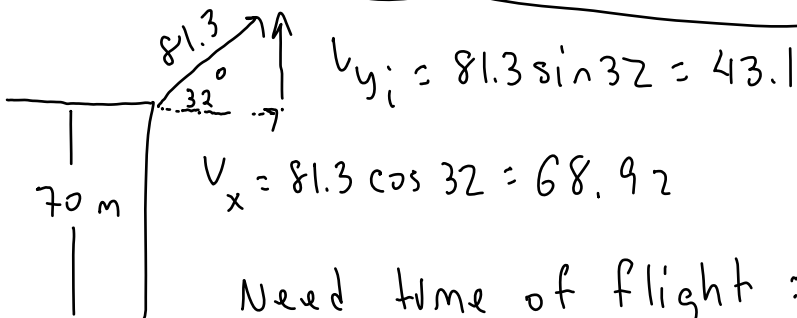 81.3
32°
V_yi = 81.3 sin 32 = 43.1
V_x = 81.3 cos 32 = 68.92
70 m
Need time of flight :